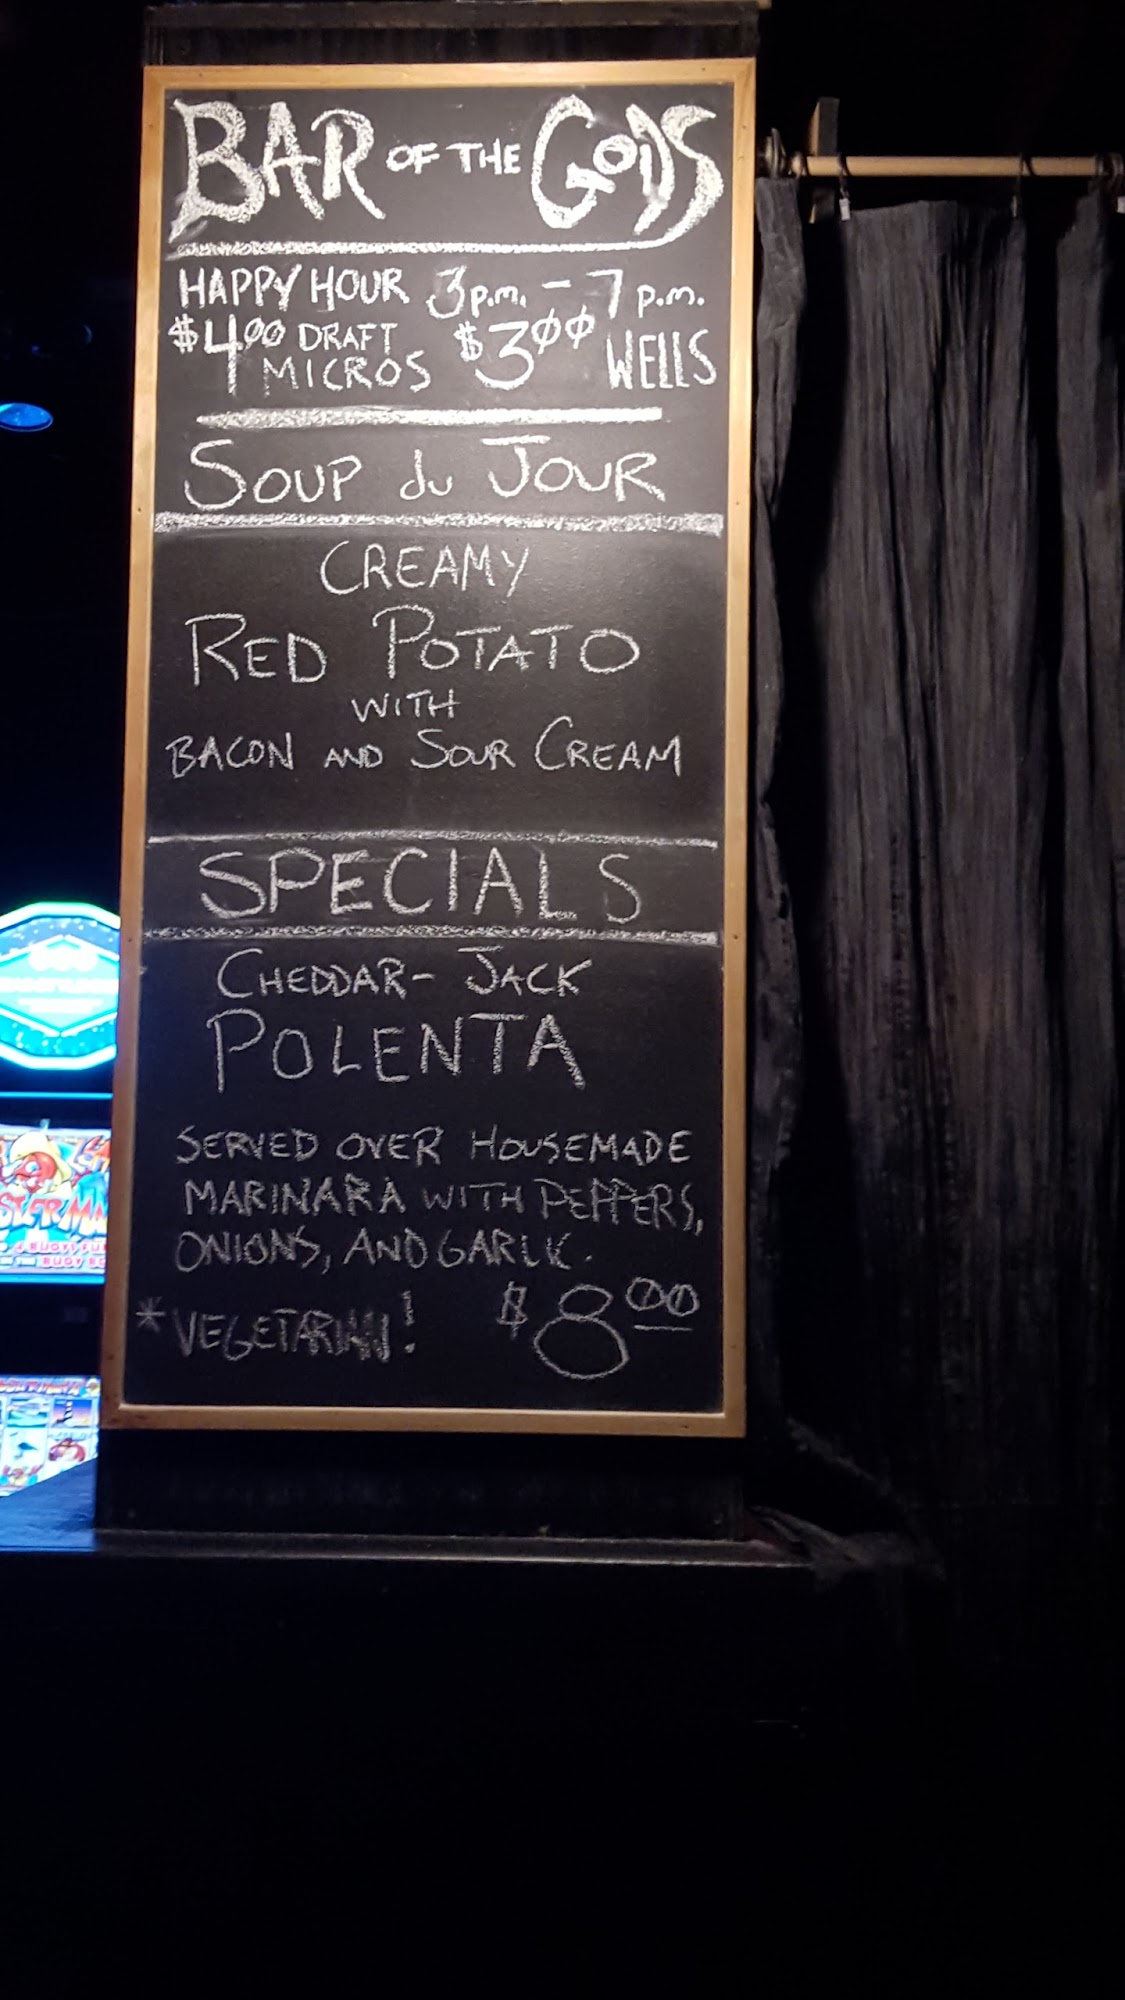 BAR OF THE GODS
HAPPY HOUR 3p.m. - 7p.m.
$4.00 DRAFT MICROS $3.00 WELLS
SOUP du JOUR
CREAMY
RED POTATO
WITH
BACON AND SOUR CREAM
SPECIALS
CHEDDAR-JACK
POLENTA
SERVED OVER HOUSEMADE
MARINARA WITH PEPPERS,
ONIONS, AND GARLIC.
*VEGETARIAN! $8.00